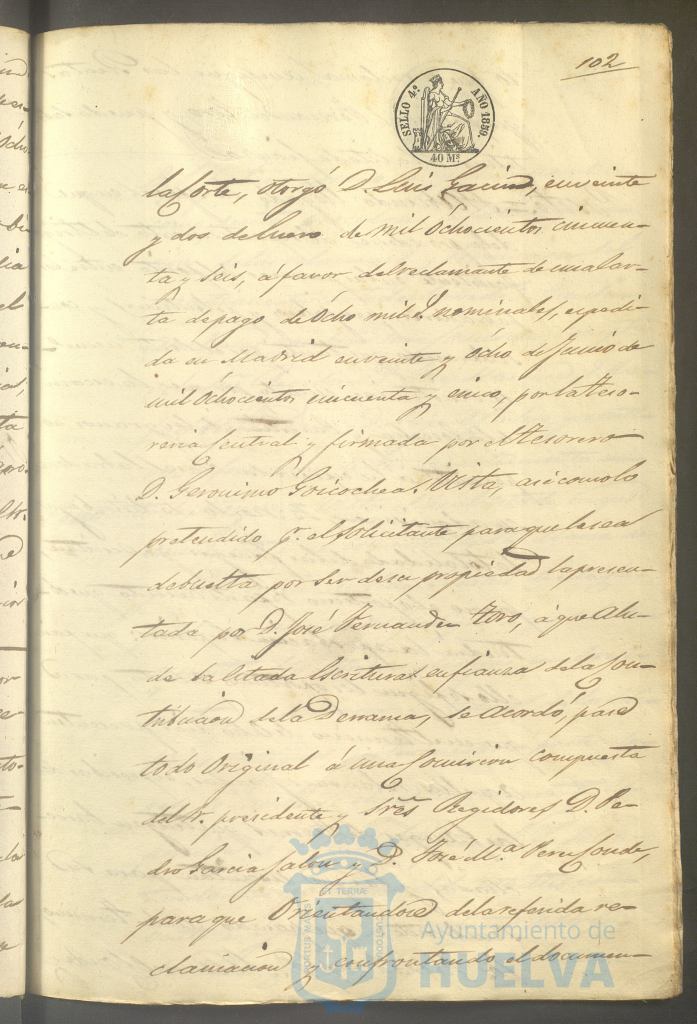 102
SELLO 4º AÑO 1859.
40 Ms
la Corte, otorgó D. Luis Garcia, en veinte
y dos de Enero de mil Ochocientos cincuen-
ta y Seis, á favor del reclamante de una Car-
ta de pago de Ocho mil rs nominales, expedi-
da en Madrid en veinte y ocho de Junio de
mil Ochocientos cincuenta y cinco, por la Teso-
reria Central y firmada por el tesorero
D. Geronimo Goicochea. Vista, asi como lo
pretendido pr. el Solicitante para que le sea
debuelta por ser de su propiedad la presen-
tada por D. José Fernandez Toro, á que alu-
de la citada Escritura en fianza de la Con-
tribucion de la Derrama, se acordó, pase
todo Original á una Comision compuesta
del Sr. presidente y Sres Regidores D. Pe-
dro Garcia Jalon y D. José Mª Perez Conde,
para que Orientandose de la referida re-
clamacion y confrontando el documen-
ET TERRAE
PORTUS MARIS
CUSTODIA
Ayuntamiento de
HUELVA